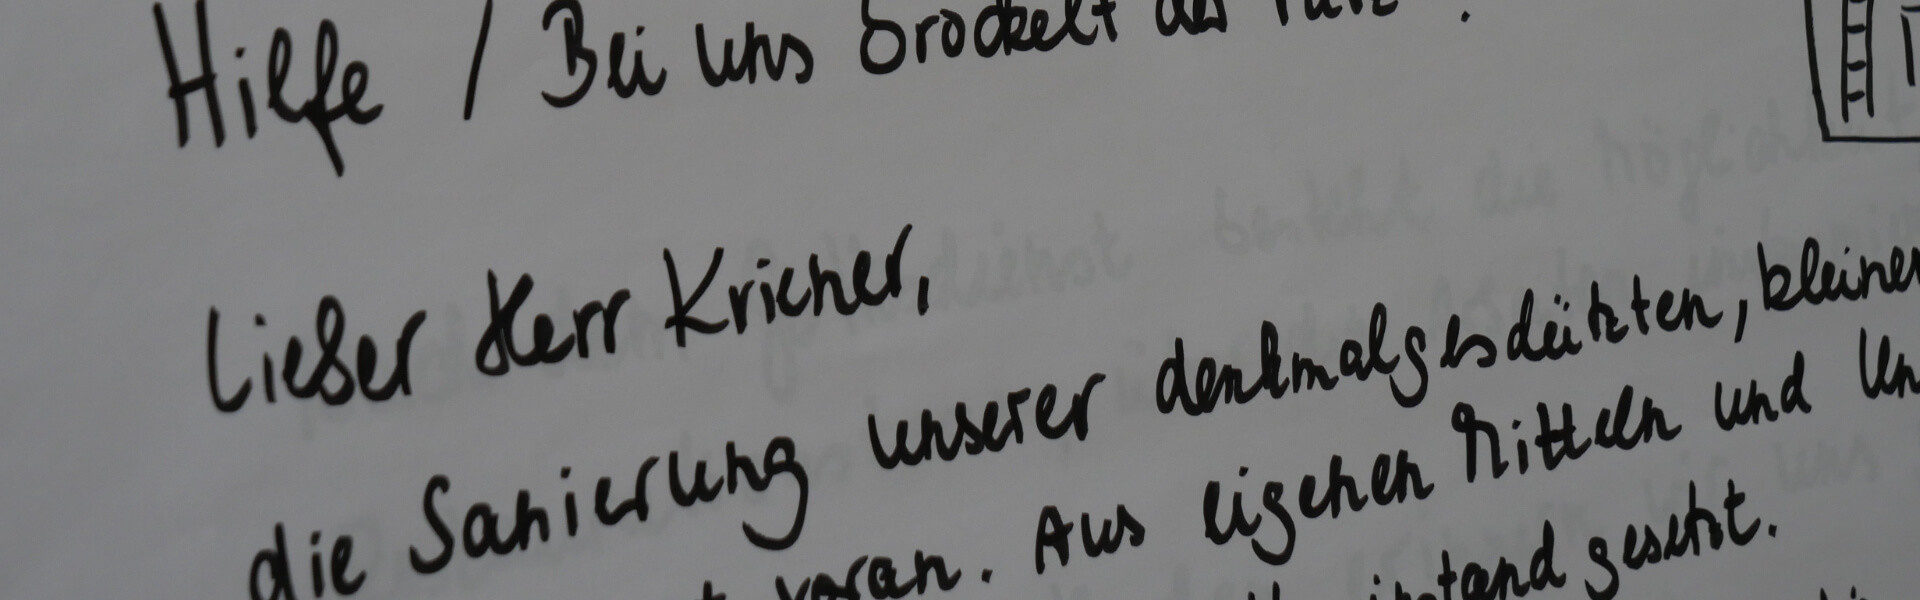 Hilfe / Bei uns bröckelt der Putz.
Lieber Herr Kricher,
die Sanierung unserer denkmalgeschützten, kleinen
voran. Aus eigenen Mitteln und
instand gesetzt.